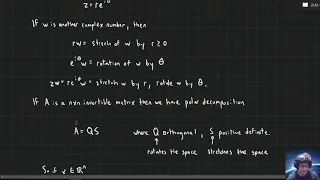 z = re^{iθ}
If w is another complex number, then
rw = strech of w by r ≥ 0
e^{iθ}w = rotation of w by θ
zw = re^{iθ}w = stretch w by r, rotate w by θ.
If A is a nxn invertible matrix then we have polar decomposition
A = QS where Q orthogonal, S positive definite.
rotates the space stretches the space
So if x ∈ ℝ^n